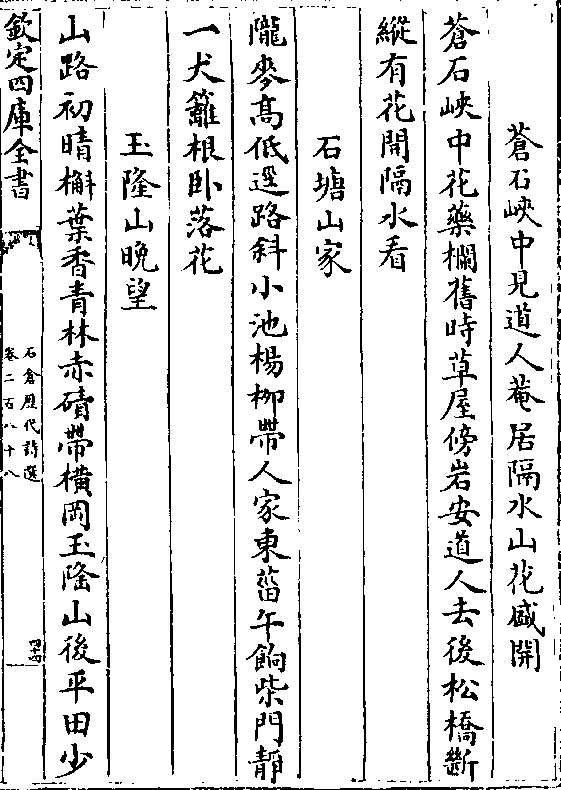 蒼石峽中見道人菴居隔水山花盛開
蒼石峽中花藥欄舊時草屋傍岩安道人去後松橋斷
縱有花開隔水看
石塘山家
隴麥髙低逕路斜小池楊柳帶人家東菑午餉柴門靜
一犬籬根卧落花
玉隆山晚望
山路初晴檞葉香青林赤磧帶橫岡玉隆山後平田少
欽定四庫全書
石倉歴代詩選
卷二百八十八
四十四